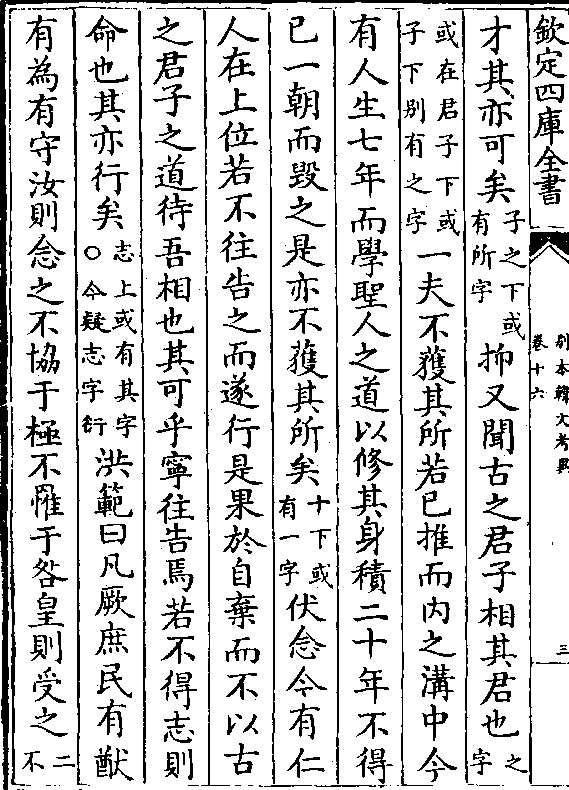 欽定四庫全書
別本韓文考異
卷十六
三
才其亦可矣子之下或有所字抑又聞古之君子相其君也之字
或在君子下或子下別有之字一夫不獲其所若已推而內之溝中今
有人生七年而學聖人之道以修其身積二十年不得
已一朝而毀之是亦不獲其所矣十下或有一字伏念今有仁
人在上位若不往告之而遂行是果於自棄而不以古
之君子之道待吾相也其可乎寧往告焉若不得志則
命也其亦行矣志上或有其字○今疑志字衍洪範曰凡厥庶民有猷
有為有守汝則念之不協于極不罹于咎皇則受之二不